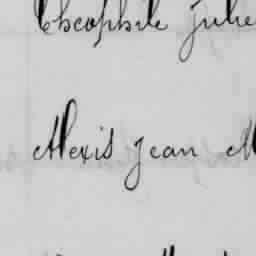 Théophile Julie
Alexis Jean M